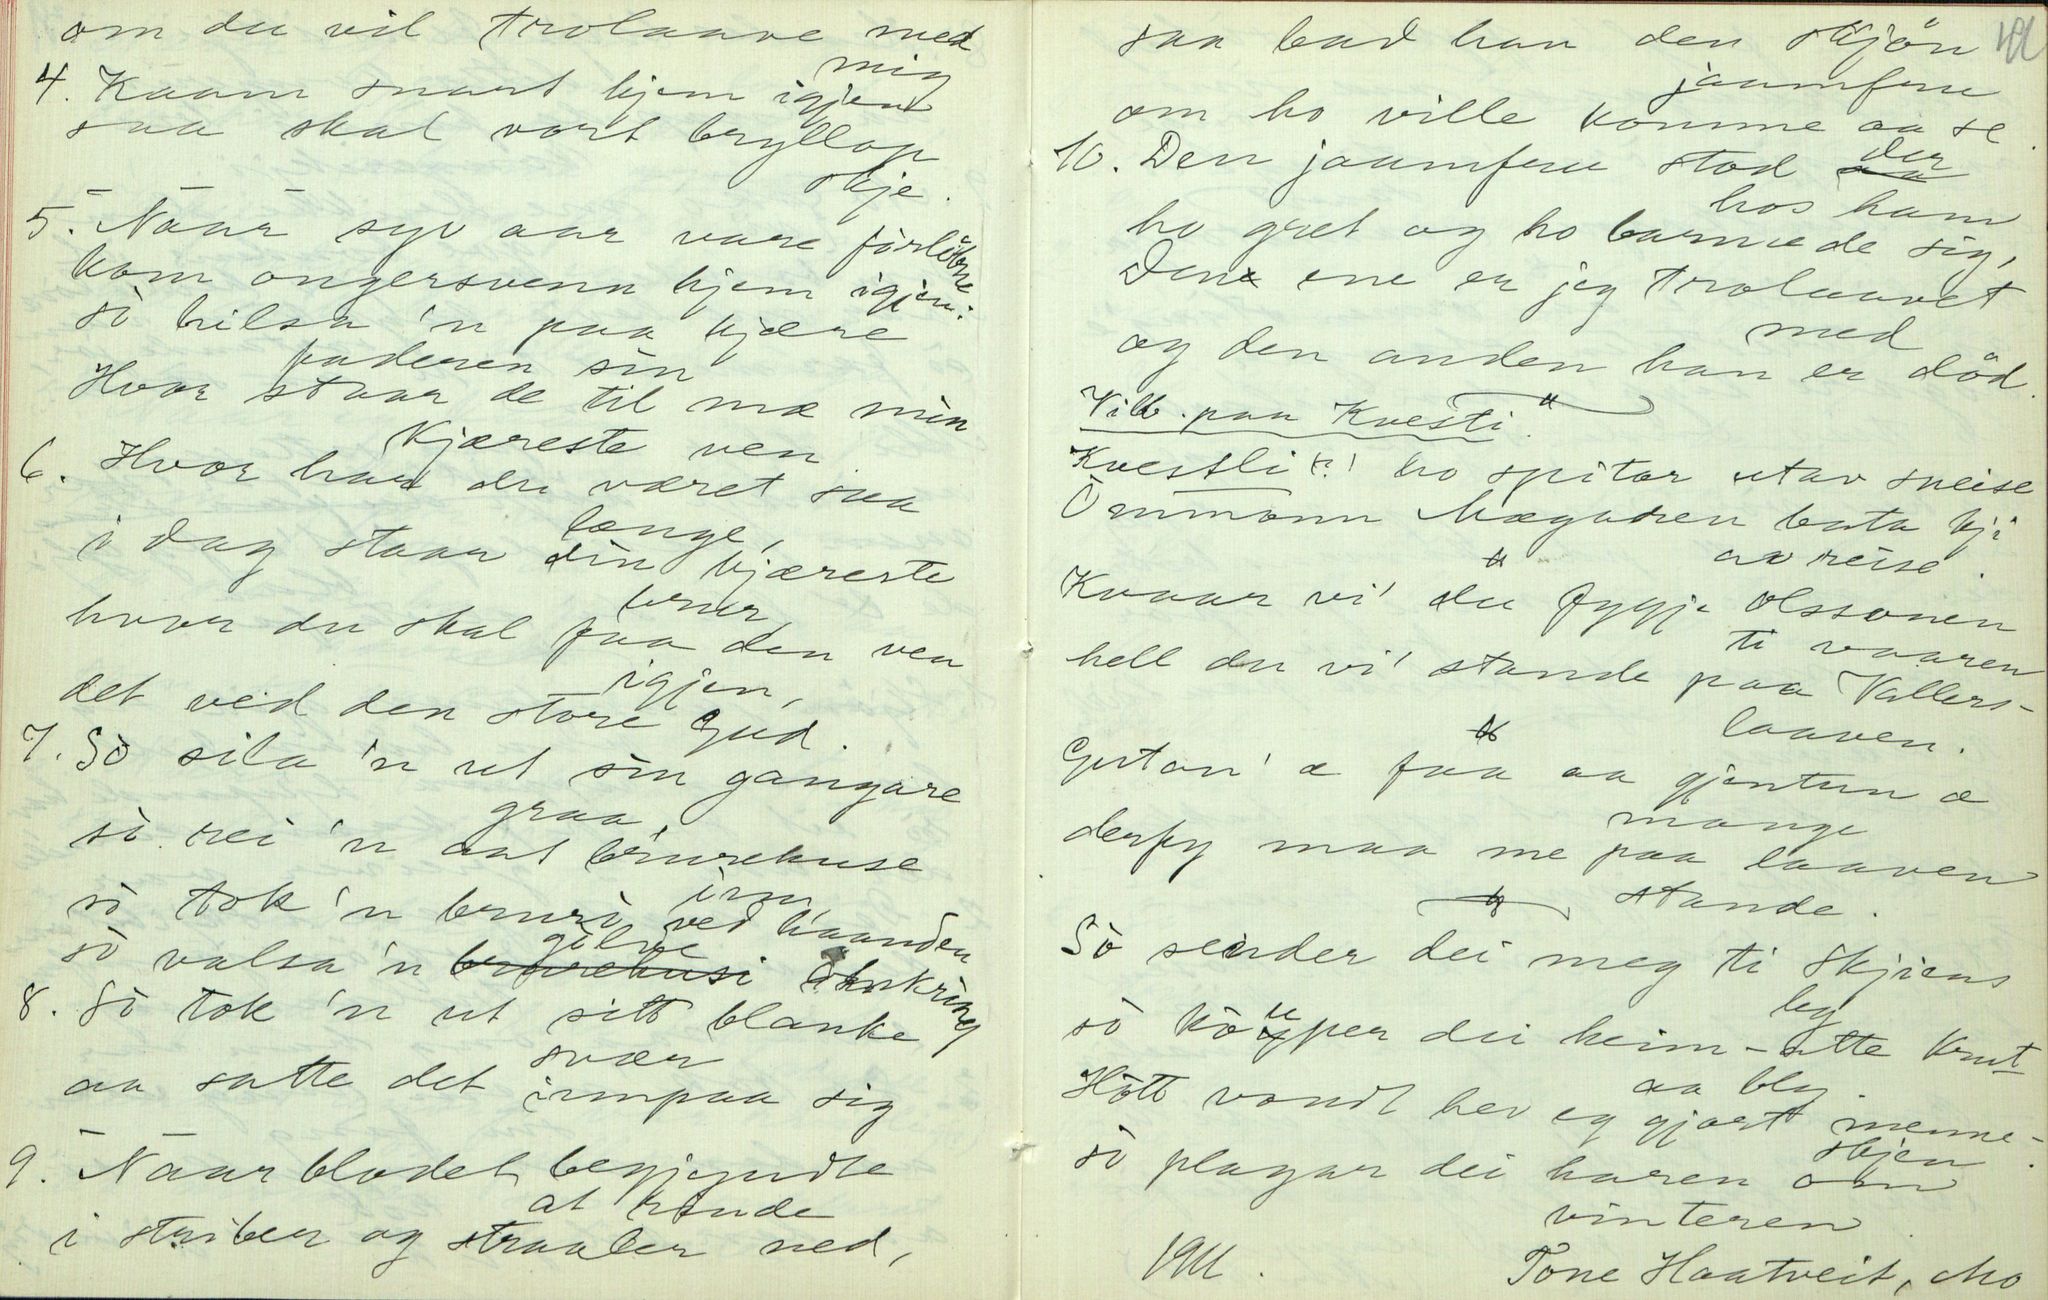 om du vil trolaave med
mig
4. Kaam snart hjem igjen
saa skal vort bryllop
skje.
5. Naar syv aar vare forløbne
kom ongersvenn hjem igjen:
so hilsa 'n paa kjære
faderen sin
Hvor staar de til mæ min
kjæreste ven
6. Hvor har du været saa
længe,
i dag staar din kjæreste
brur,
hvor du skal faa den ven
igjen,
det ved den store Gud.
7. So sila 'n ut sin gangare
graa
so rei 'n aat brurehuse
inn
so tok 'n bruri ved haanden
so valsa 'n brurehusi gilde omkring
8. So tok 'n ut sitt blanke
svær
aa satte det innpaa sig
9. Naar blodet begjyndte
at rinde
i striber og straaler ned,
saa bad han den skjøn
jaamfru
om ho ville komme aa se.
10. Den jaamfru stod der
hos ham
ho gret og ho barmede sig,
Den ene er jeg trolaavet
med
og den anden han er død.
Vilb. paa Kvesti.
Kvestli(?) ho spitar utav sneise
Ommonn Mægadren bata kji
av reise.
Kvaar vi' du fygje Olssonen
ti vaaren
hell du vi' stande paa Vallers-
laaven.
Guton' æ faa aa gjentun æ
mange
derfy maa me paa laaven
stande.
So sender dei meg ti Skjiens
by
so køuper dei heim-atte krut
aa bly.
Hott vondt hev eg gjort menne-
skjen
so plagar dei haren om
vinteren
1911. Tone Haatveit, Mo